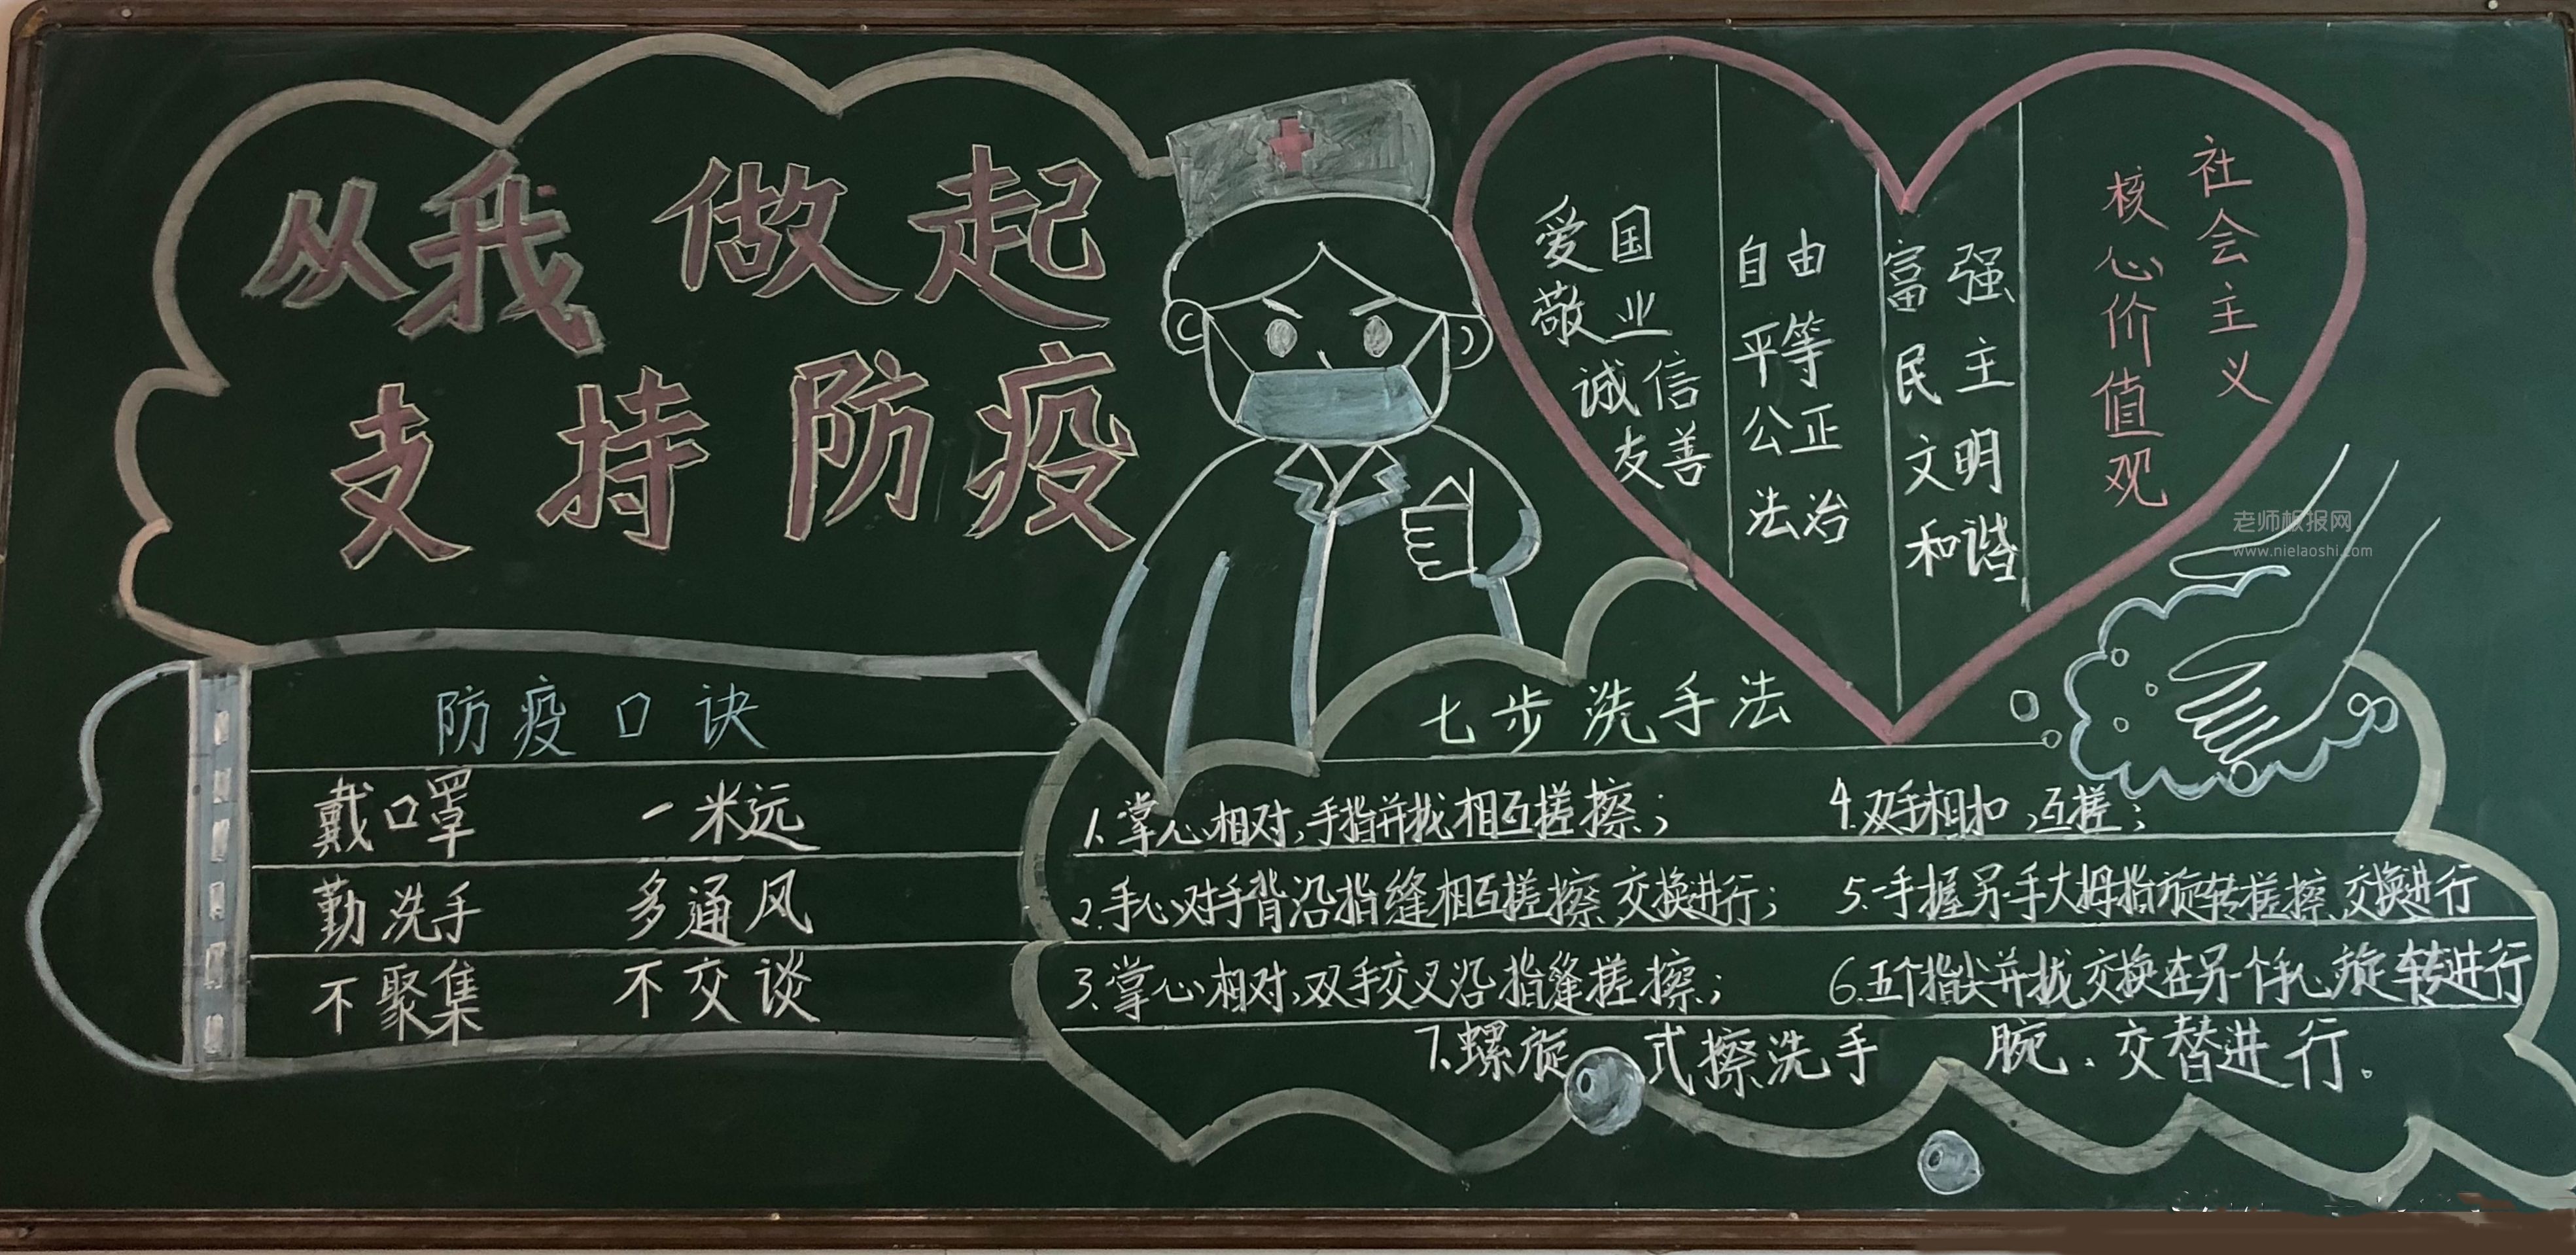 从我做起
支持防疫
社会主义
核心价值观
富强
民主
文明
和谐
自由
平等
公正
法治
爱国
敬业
诚信
友善
老师板报网
www.nielaoshi.com
防疫口诀
戴口罩 一米远
勤洗手 多通风
不聚集 不交谈
七步洗手法
1.掌心相对,手指并拢相互搓擦;
2.手心对手背沿指缝相互搓擦,交换进行;
3.掌心相对,双手交叉沿指缝搓擦;
4.双手相扣,互搓;
5.一手握另一手大拇指旋转搓擦,交换进行
6.五个指尖并拢交换在另一个手心旋转进行
7.螺旋式擦洗手腕,交替进行。